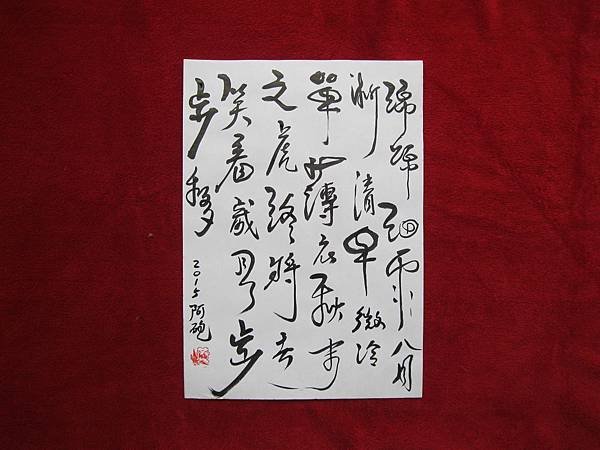 綿綿細雨八月
清早微冷
單薄衣秋
之虎終將去
笑看歲月步
步移
2015 阿砲